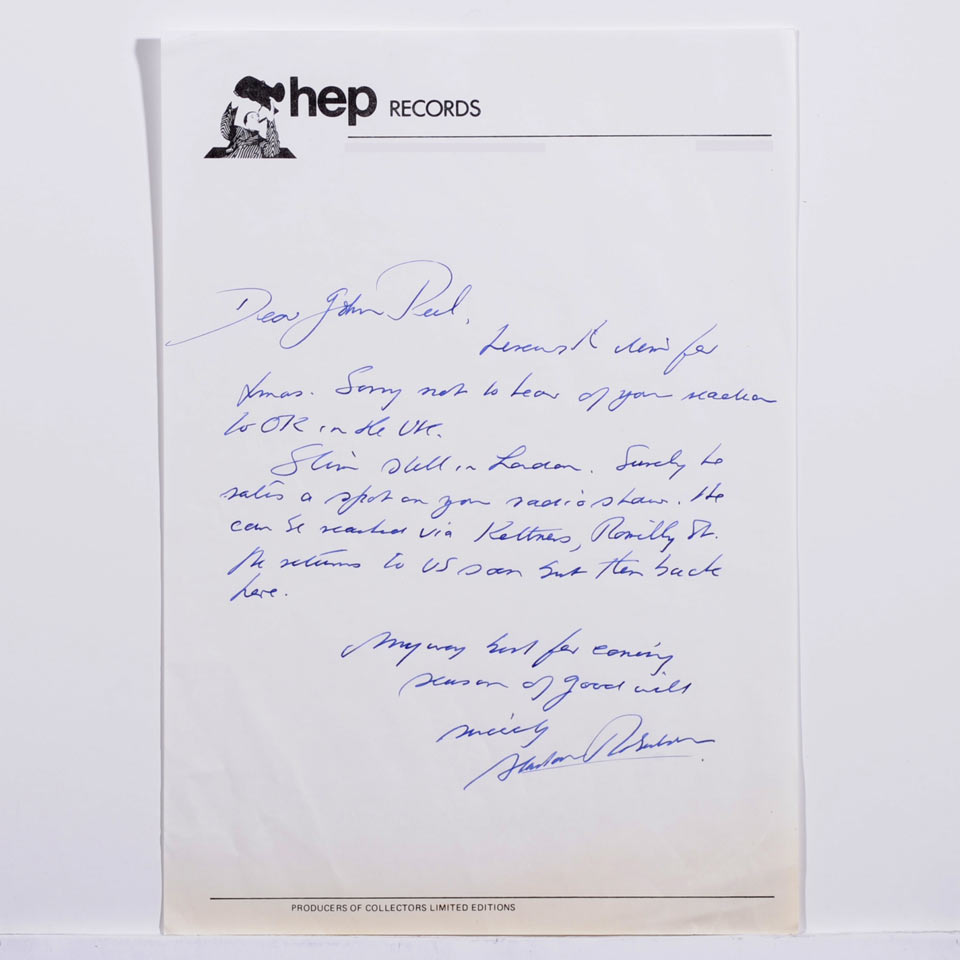 hep RECORDS
Dear John Peel,
for
Xmas. Sorry not to hear of your reaction
to OK in the UK.
Slim still in London. Surely he
rates a spot on your radio show. He
can be reached via Kettners, Romilly St.
He returns to US soon but then back
here.
Anyway best for coming
season of good will
sincerely
Alastair Robertson
PRODUCERS OF COLLECTORS LIMITED EDITIONS